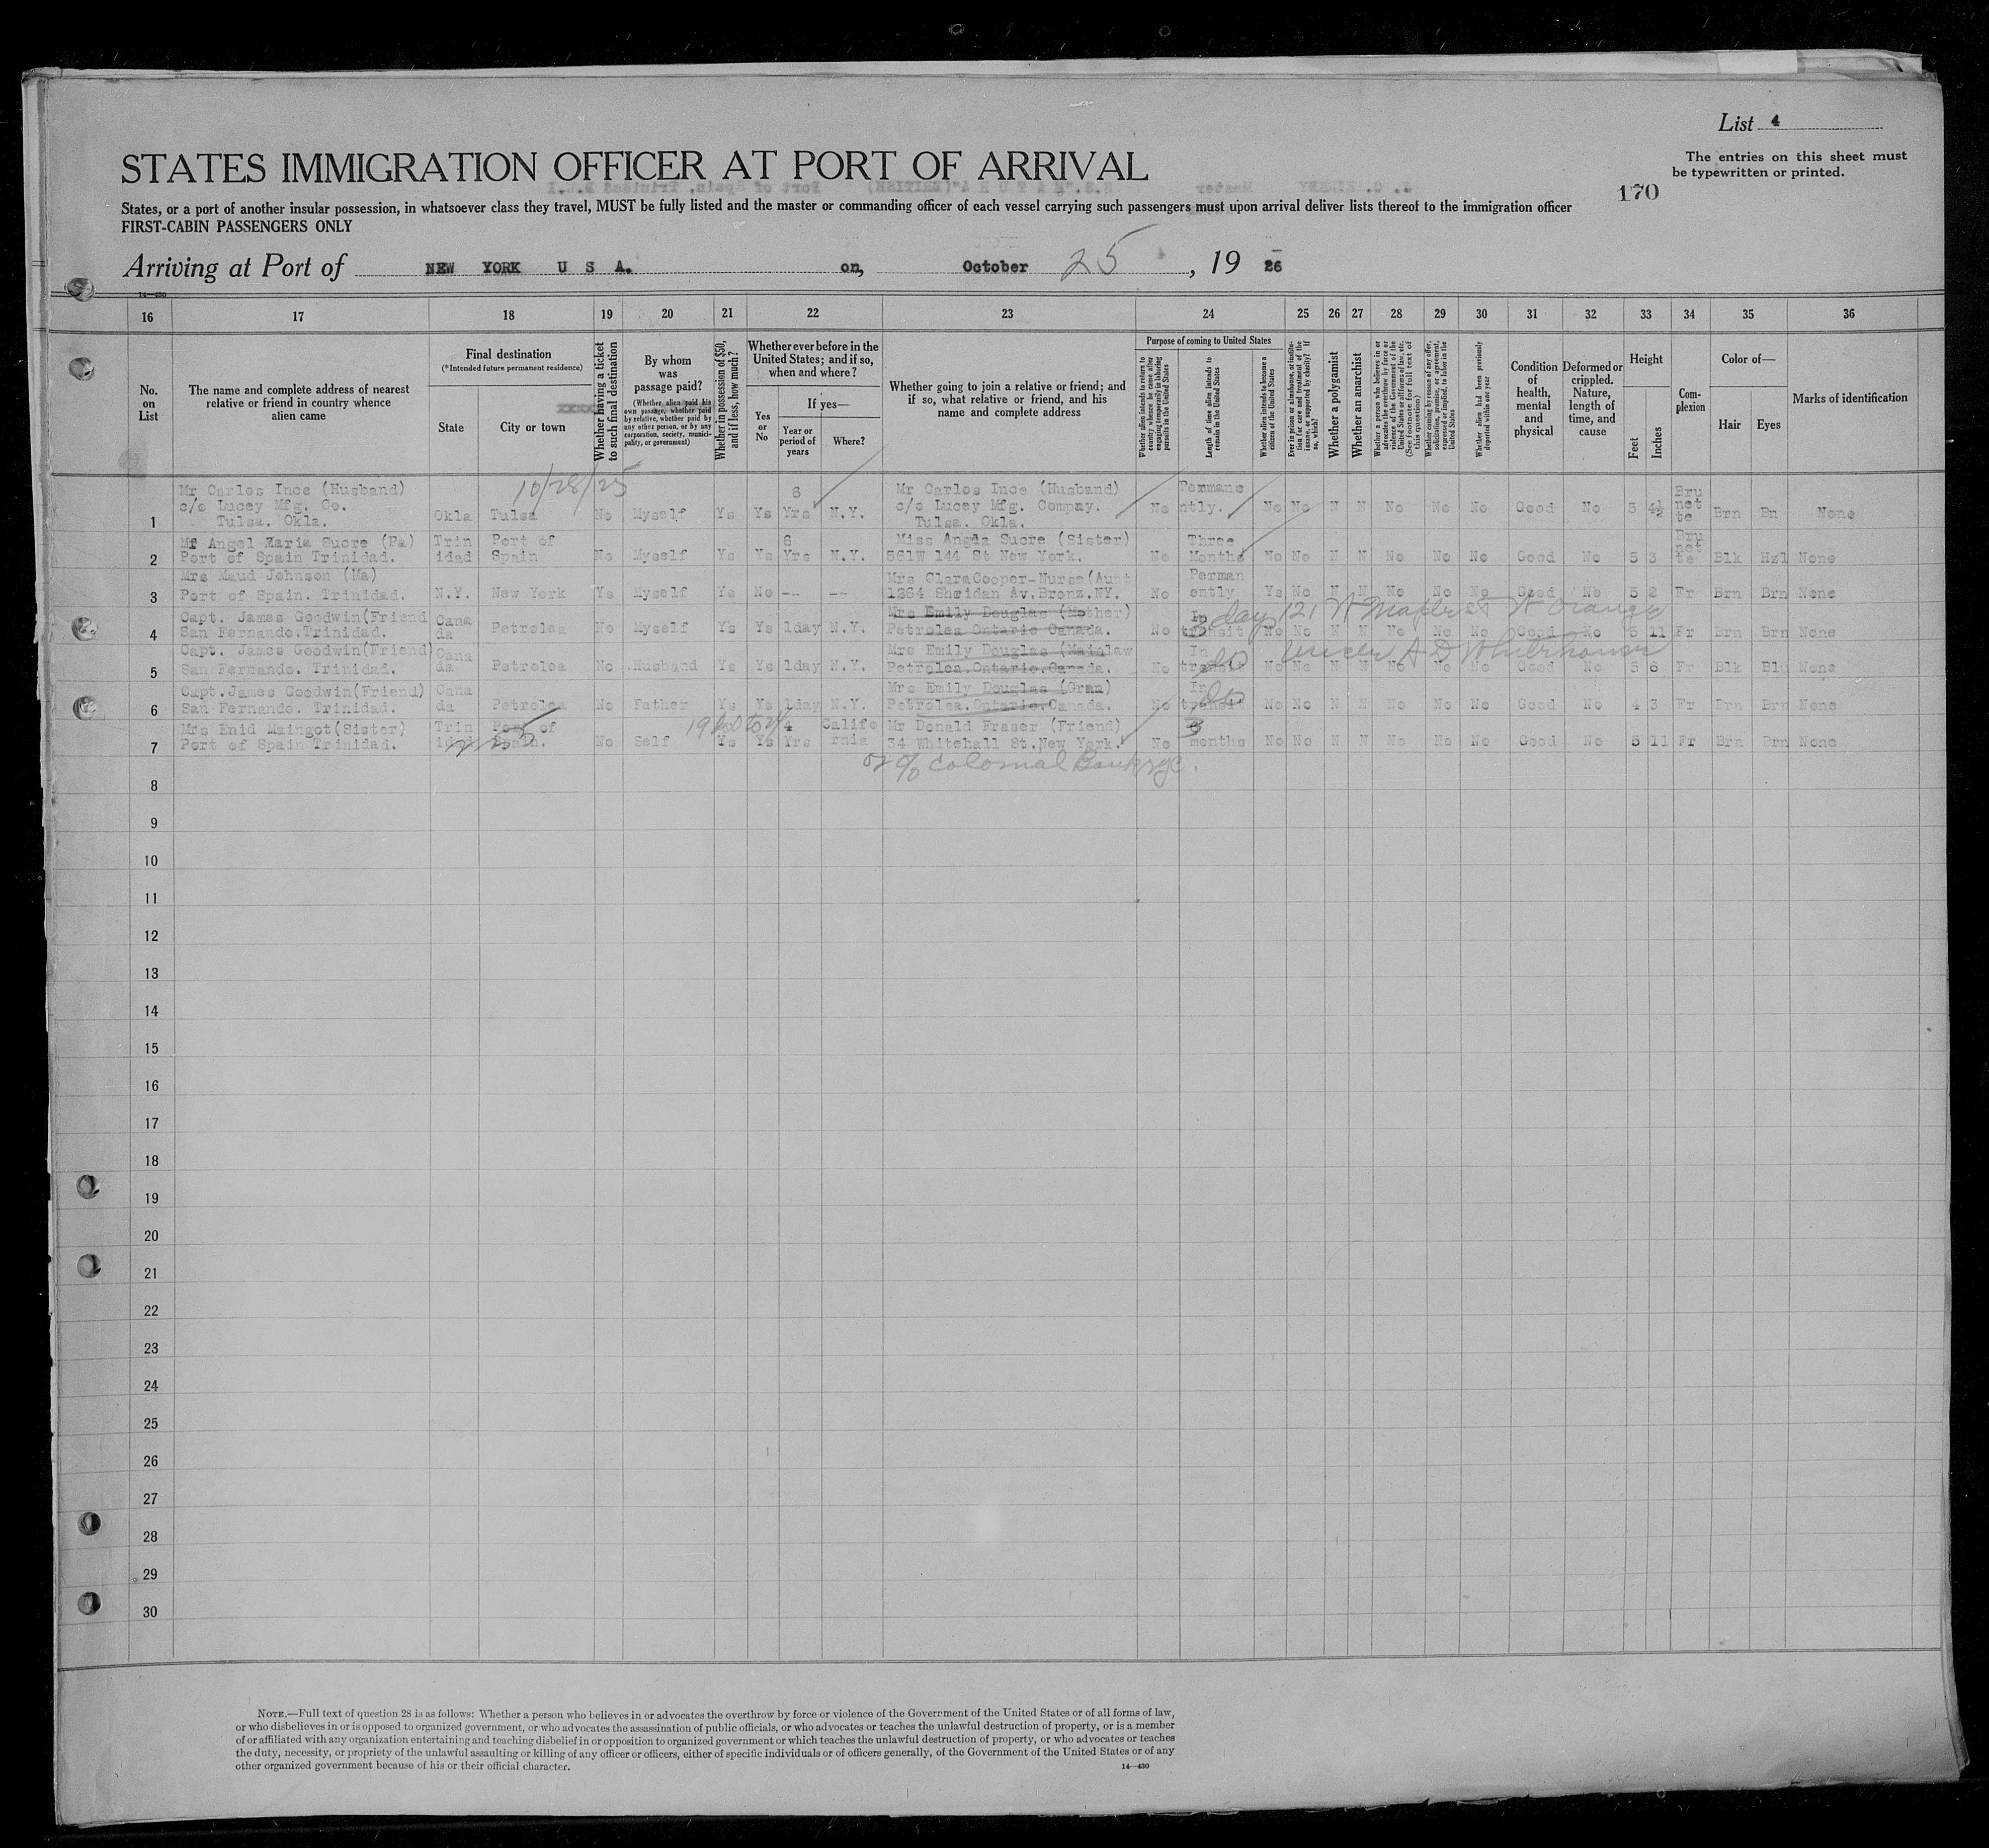 List 4
STATES IMMIGRATION OFFICER AT PORT OF ARRIVAL
The entries on this sheet must
be typewritten or printed.
170
States, or a port of another insular possession, in whatsoever class they travel, MUST be fully listed and the master or commanding officer of each vessel carrying such passengers must upon arrival deliver lists thereof to the immigration officer
FIRST-CABIN PASSENGERS ONLY
Arriving at Port of NEW YORK U S A. on, October 25, 1926
14—430
16 17 18 19 20 21 22 23 24 25 26 27 28 29 30 31 32 33 34 35 36
No. on List
The name and complete address of nearest relative or friend in country whence alien came
Final destination
(*Intended future permanent residence)
State
City or town
Whether having a ticket to such final destination
By whom was passage paid?
(Whether alien paid his own passage, whether paid by relative, whether paid by any other person, or by any corporation, society, municipality, or government)
Whether in possession of $50, and if less, how much?
Whether ever before in the United States; and if so, when and where?
Yes or No
If yes—
Year or period of years
Where?
Whether going to join a relative or friend; and if so, what relative or friend, and his name and complete address
Purpose of coming to United States
Whether alien intends to return to country whence he came after engaging temporarily in laboring pursuits in the United States
Length of time alien intends to remain in the United States
Whether alien intends to become a citizen of the United States
Ever in prison or almshouse, or institution for care and treatment of the insane, or supported by charity? If so, which?
Whether a polygamist
Whether an anarchist
Whether a person who believes in or advocates the overthrow by force or violence of the Government of the United States or all forms of law, etc. (See footnote for full text of this question)
Whether coming by reason of any offer, solicitation, promise, or agreement, expressed or implied, to labor in the United States
Whether alien had been previously deported within one year
Condition of health, mental and physical
Deformed or crippled. Nature, length of time, and cause
Height
Feet
Inches
Complexion
Color of—
Hair
Eyes
Marks of identification
10/28/25
1 Mr Carlos Ince (Husband) c/o Lucey Mfg. Co. Tulsa. Okla. Okla Tulsa No Myself Ys Ys 6 Yrs N.Y. Mr Carlos Ince (Husband) c/o Lucey Mfg. Compay. Tulsa. Okla. No Permane ntly. No No N N No No No Good No 5 4½ Bru net te Brn Bn None
2 Mr Angel Maria Sucre (Pa) Port of Spain Trinidad. Trin idad Port of Spain No Myself Ys Ys 6 Yrs N.Y. Miss Angela Sucre (Sister) 561W 144 St New York. No Three Months No No N N No No No Good No 5 3 Bru net te Blk Hzl None
3 Mrs Maud Johnson (Ma) Port of Spain. Trinidad. N.Y. New York Ys Myself Ys No -- -- Mrs ClaraCooper-Nurse(Aunt 1264 Sheridan Av.Bronz.NY. No Perman ently Ys No N N No No No Good No 5 2 Fr Brn Brn None
4 Capt. James Goodwin(Friend San Fernando.Trinidad. Cana da Petrolea No Myself Ys Ys 1day N.Y. Mrs Emily Douglas (Mother) Petrolea Ontario Canada. No In transit No No N N No No No Good No 5 11 Fr Brn Brn None
3 days 121 N Maple st N Orange
5 Capt. James Goodwin(Friend) San Fernando. Trinidad. Cana da Petrolea No Husband Ys Ys 1day N.Y. Mrs Emily Douglas (Mainlaw Petrolea.Ontario.Canada. No In transit No No N N No No No Good No 5 6 Fr Blk Blu None
do
6 Capt.James Goodwin(Friend) San Fernando. Trinidad. Cana da Petrolea No Father Ys Ys 1day N.Y. Mrs Emily Douglas (Gran) Petrolea.Ontario.Canada. No In transit No No N N No No No Good No 4 3 Fr Brn Brn None
do
7 Mrs Enid Maingot(Sister) Port of Spain Trinidad. Trin idad Port of Spain. No Self Ys Ys 4 Yrs Califo rnia Mr Donald Fraser (Friend) 34 Whitehall St.New York. No 3 months No No N N No No No Good No 5 11 Fr Brn Brn None
or c/o Colonial Bank nyc.
8
9
10
11
12
13
14
15
16
17
18
19
20
21
22
23
24
25
26
27
28
29
30
NOTE.—Full text of question 28 is as follows: Whether a person who believes in or advocates the overthrow by force or violence of the Government of the United States or of all forms of law,
or who disbelieves in or is opposed to organized government, or who advocates the assassination of public officials, or who advocates or teaches the unlawful destruction of property, or is a member
of or affiliated with any organization entertaining and teaching disbelief in or opposition to organized government or which teaches the unlawful destruction of property, or who advocates or teaches
the duty, necessity, or propriety of the unlawful assaulting or killing of any officer or officers, either of specific individuals or of officers generally, of the Government of the United States or of any
other organized government because of his or their official character.
14—430